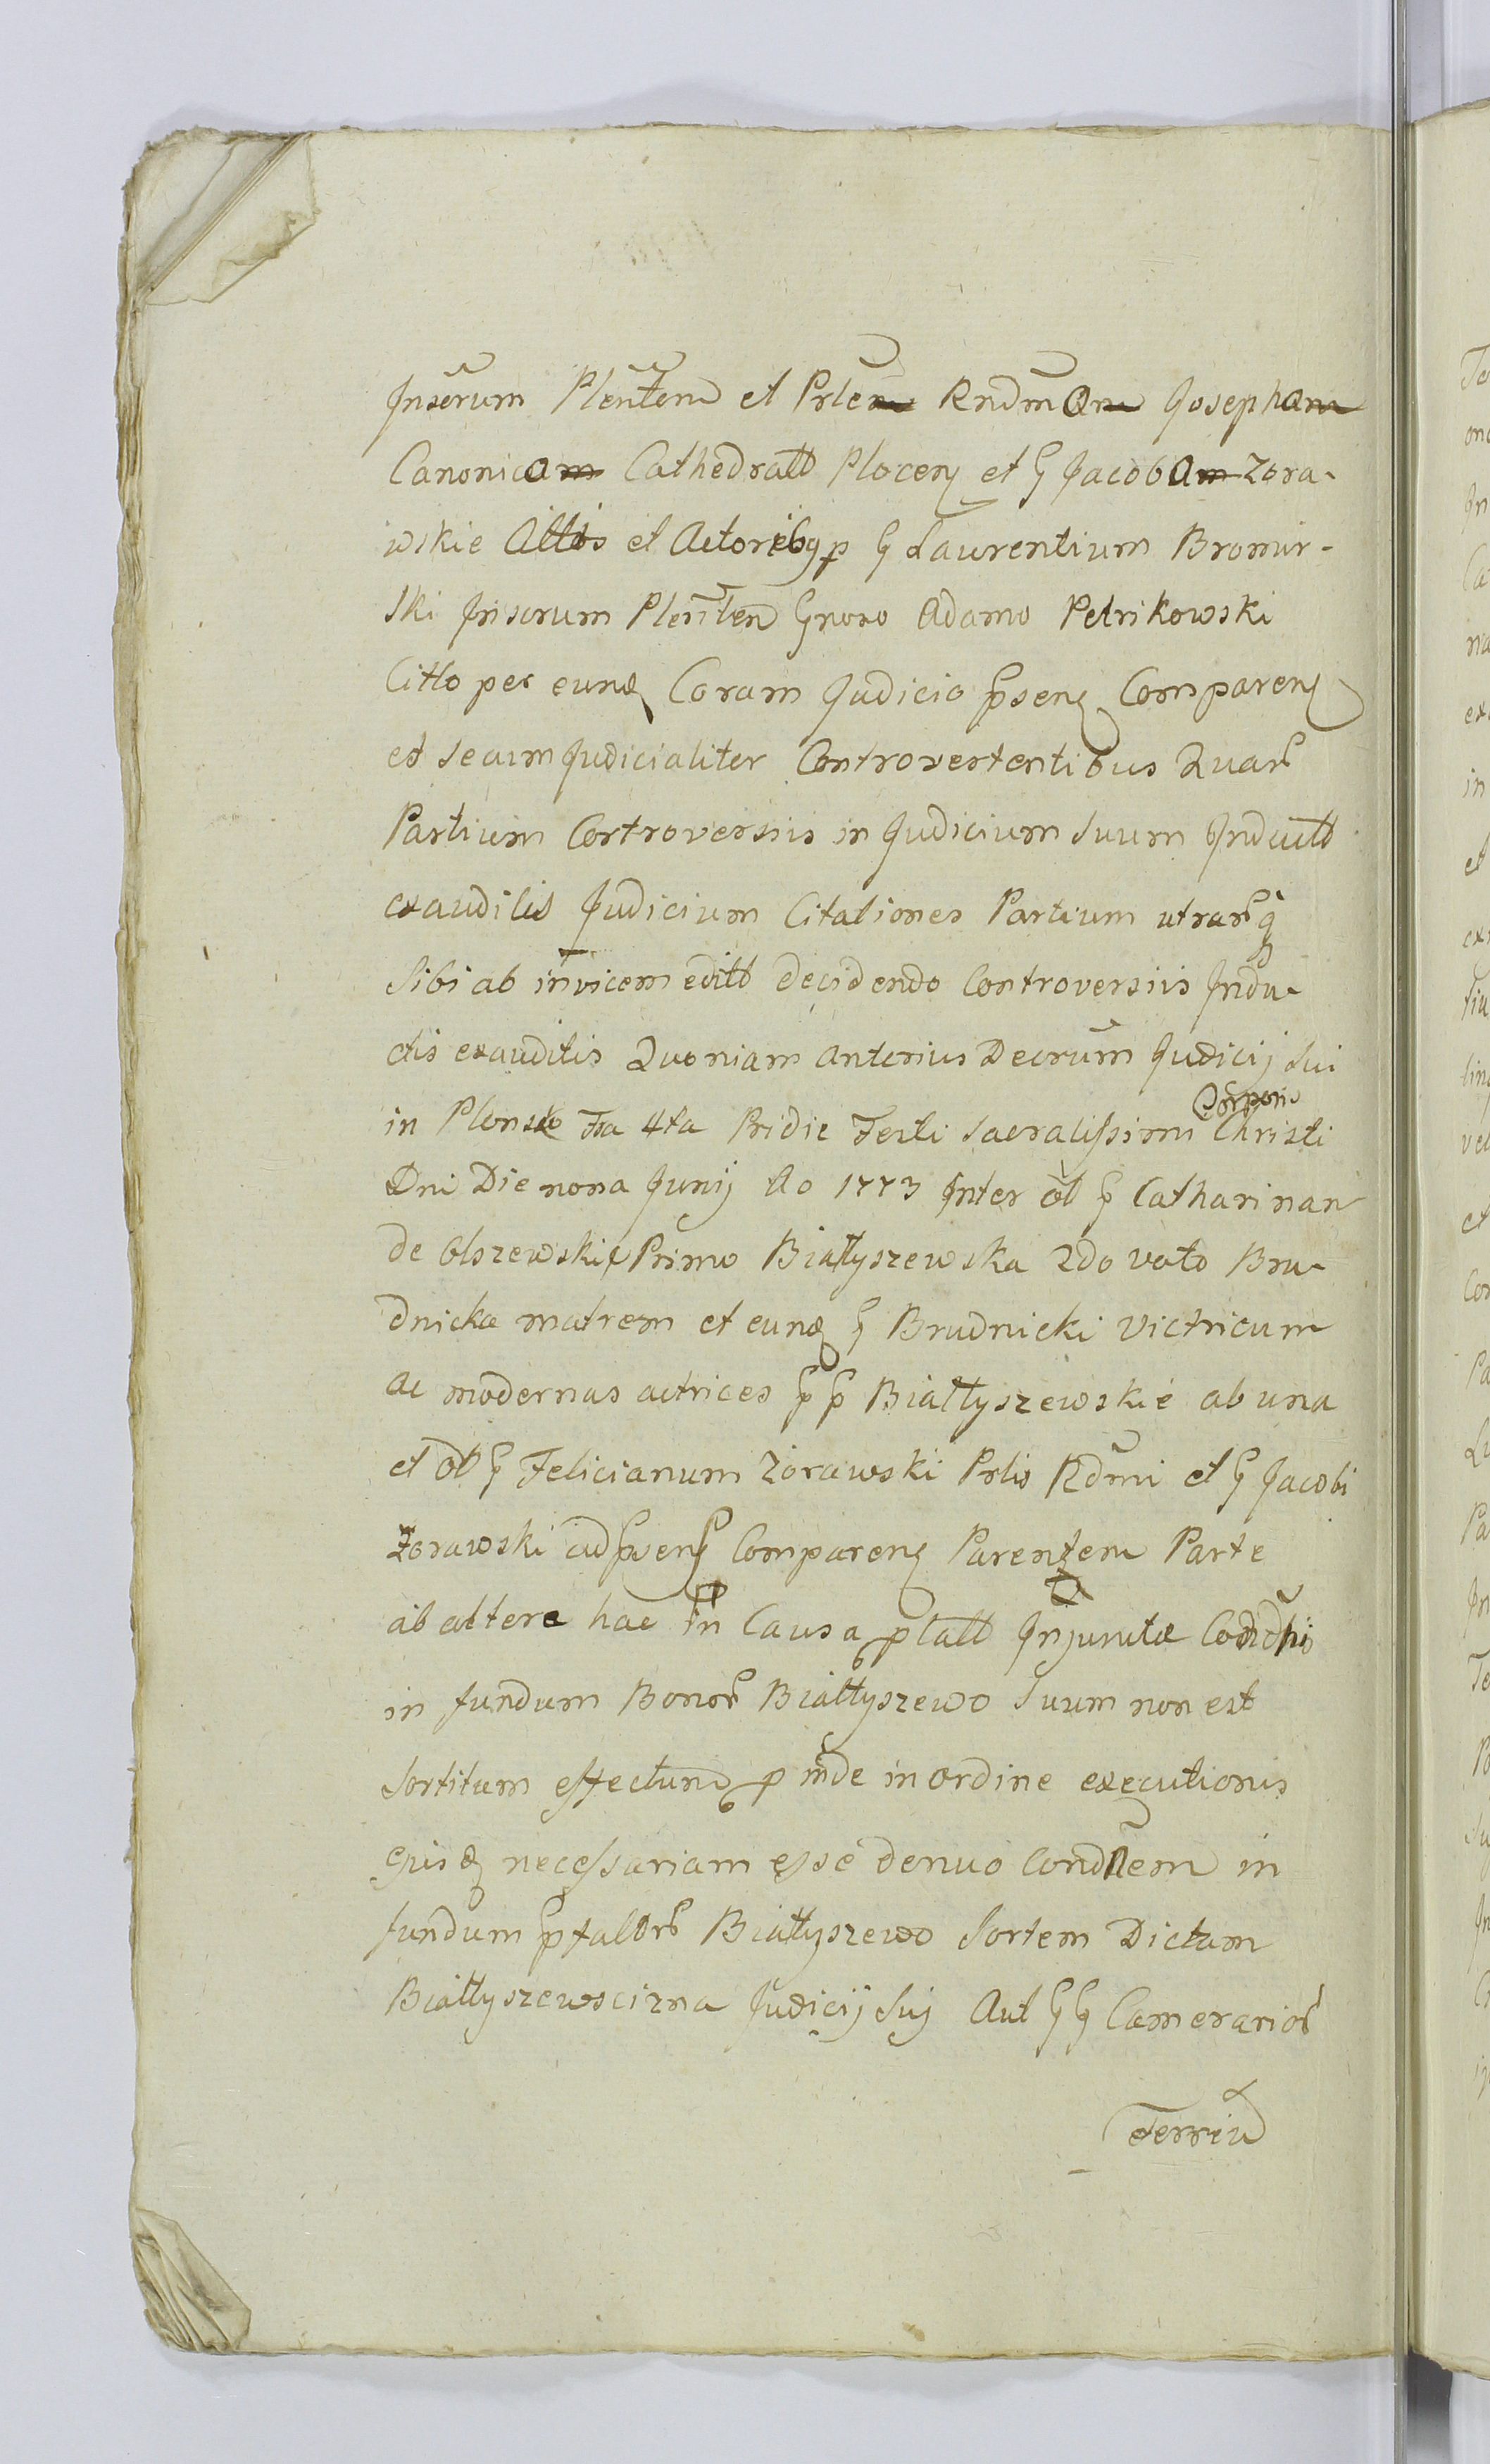 Insorum Plentem et Prlem Rndmam Josepham
Canonicam Cathedralt Plocen et G Jacobam Zora-
wskie Attos et Actoribq p G Laurentium Bromir-
ski Insorum Plenten Gnoso Adamo Petrikowski
Citto per eund Coram Judicio psen Comparen
et secum Judicialiter Controvertentibus Quar
Partium Controversiis in Judicium Suum Induct
exauditis Judicium Citationes Partium utrarq
Sibi ab invicem edit decidendo Controversiis Indu-
ctis exauditis Quoniam anterius Decrum Judicij Sui
in Plonsk Fra 4ta Pridie Festi Sacratissimi Corporis Christi
Dni Die nona Junij Ao 1773 Inter ol G Catharinam
de Olszewskie Primo Białłyszewska 2do voto Bru-
dnicka matrem et eund G Brudnicki Victricum
ac modernas actrices G G Białłyszewskie ab una
et ol G Felicianum Zorawski Prlis Rdmi et G Jacobi
Zorawski ad psen Comparen Parentem Parte
ab altera hac in Causa plalt Injuncta Condnis
in fundum Bonor Białłyszewo Suum non est
Sortitum effectum p inde in ordine executionis
ejusd necessariam esse denuo Condnem in
fundum pfator Białłyszewo Sortem Dictam
Białłyszewscizna Judicij Sui Aut G G Camerarior
Terriu